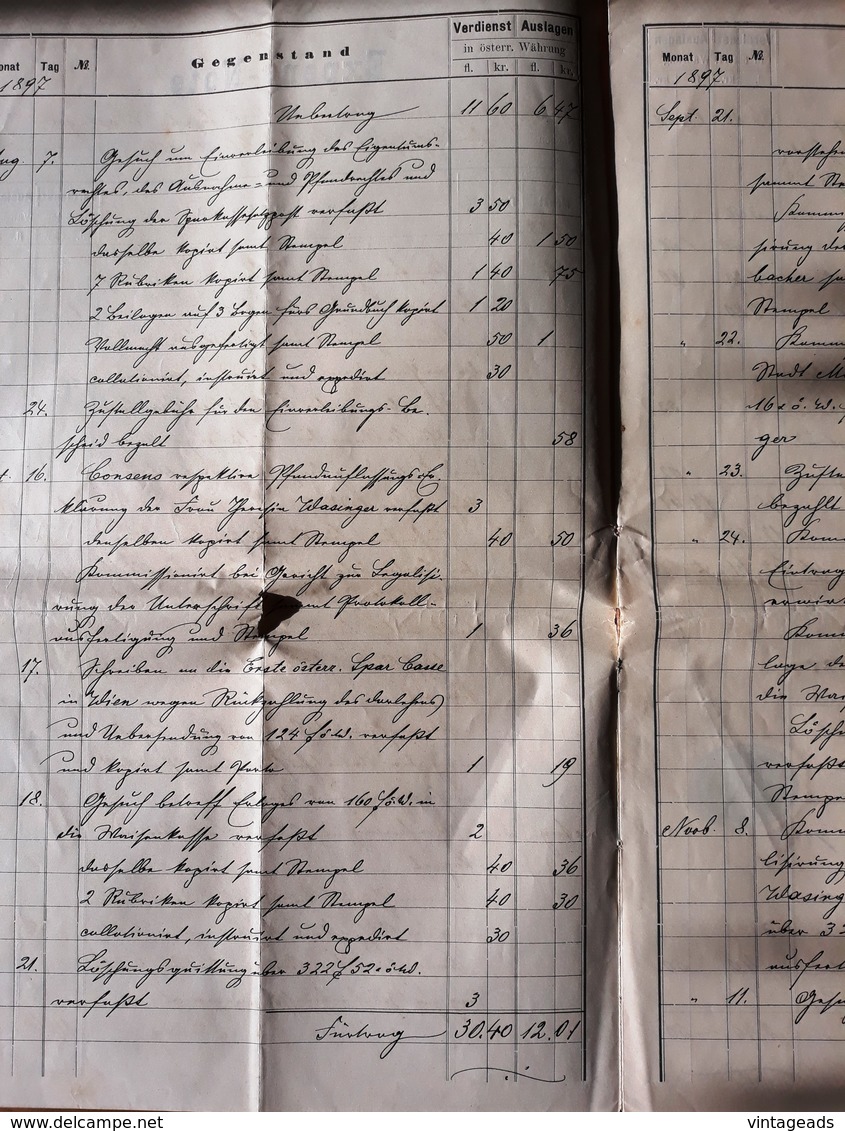 Monat Tag № Gegenstand Verdienst Auslagen
in österr. Währung
fl. kr. fl. kr.
1897
Uebertrag 11 60 6 47
Aug. 7. Gesuch um Einverleibung des Eigentums-
rechtes, des Ausnahms- und Pfandrechtes und
Löschung der Sparkassefolgpost verfaßt 3 50
dasselbe kopirt samt Stempel 40 1 50
7 Rubriken kopirt samt Stempel 1 40 75
2 Beilagen auf 3 Bogen fürs Grundbuch kopirt 1 20
Vollmacht ausgefertigt samt Stempel 50 1
collationirt, instruirt und expedirt 30
24. Zustellgebühr für den Einverleibungs-Be-
scheid bezalt 58
16. Consens respektive Pfandauflassungs Er-
klärung der Frau Theresia Wasinger verfaßt 3
denselben kopirt samt Stempel 40 50
Kommissionirt bei Gericht zur Legalisi-
rung der Unterschrift samt Protokoll-
ausfertigung und Stempel 1 36
17. Schreiben an die Erste österr. Spar Casse
in Wien wegen Rückzahlung des Darlehens
und Uebersendung von 124 f ö.W. verfaßt
und kopirt samt Porto 1 19
18. Gesuch betreff Erlages von 160 f ö.W. in
die Waisenkasse verfaßt 2
dasselbe kopirt samt Stempel 40 36
2 Rubriken kopirt samt Stempel 40 30
collationirt, instruirt und expedirt 30
21. Löschungsquittung über 322 f 52 x ö.W.
verfaßt 3
Fürtrag 30.40 12.01
Monat Tag №
1897
Sept. 21.
vorstehen
sammt Ste
Komm
sirung der
bacher sa
Stempel
" 22. Komm
Stadt M
16 x ö.W.
ger
" 23. Zuste
bezahlt
" 24. Kom
Eintrag
erwir
Kom
lage de
die Wai
Lösch
verfaßt
Stempe
Novb. 8. Kom
lisirung
Wasing
über 32
ausfert
" 11. Gesu
vintageads